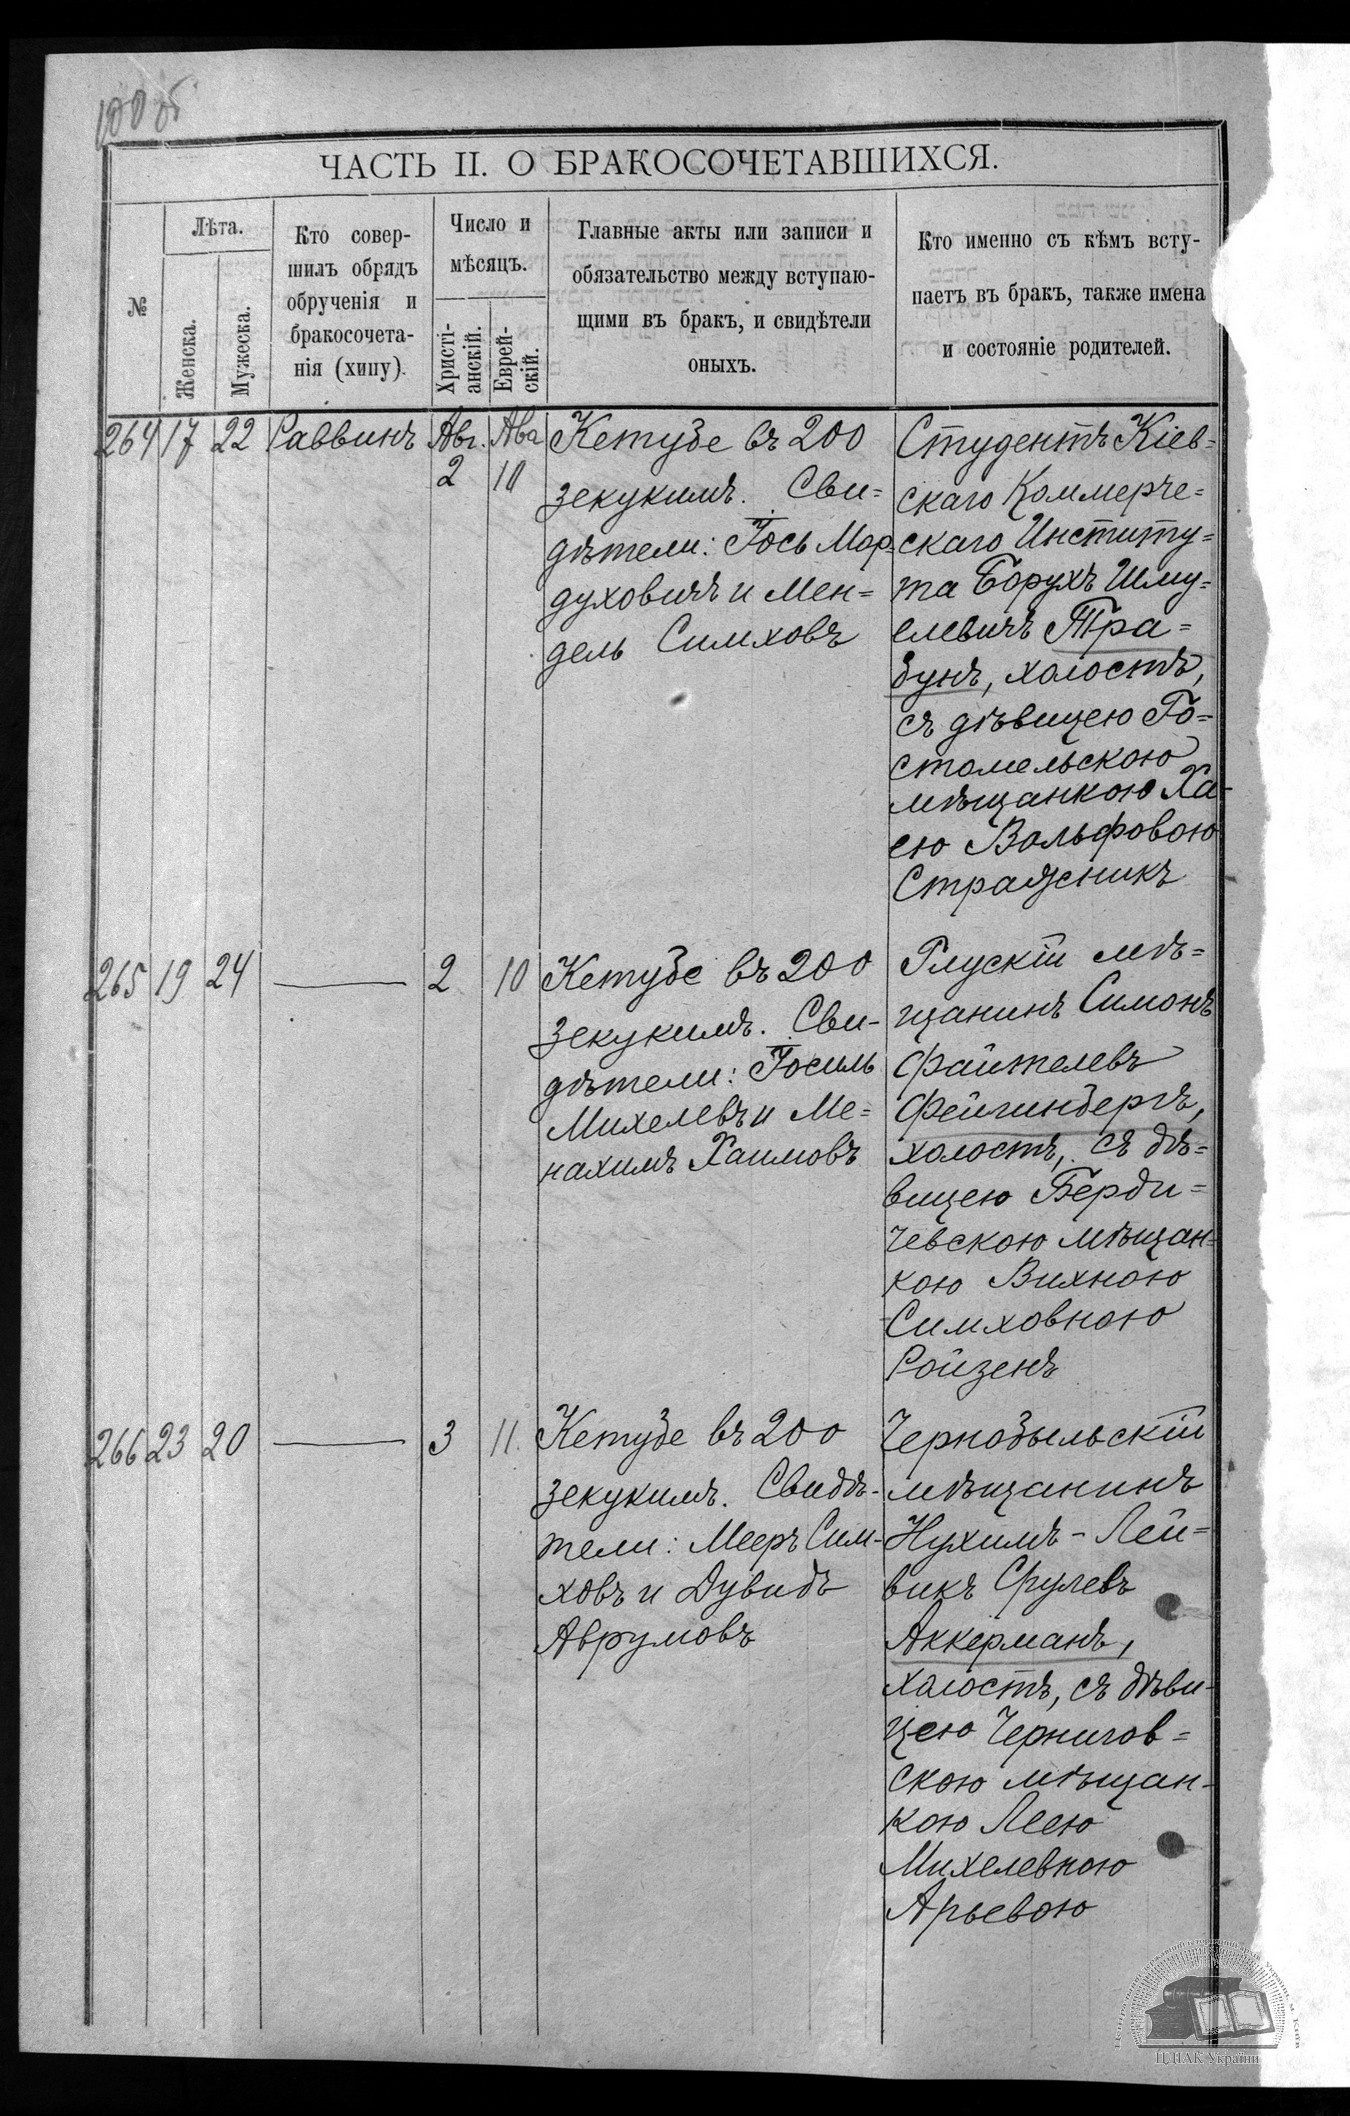 100 об
ЧАСТЬ II. О БРАКОСОЧЕТАВШИХСЯ.
№
Лѣта.
Женска.
Мужеска.
Кто совер-
шилъ обрядъ
обрученія и
бракосочета-
нія (хипу).
Число и
мѣсяцъ.
Христі-
анскій.
Еврей-
скій.
Главные акты или записи и
обязательство между вступаю-
щими въ бракъ, и свидѣтели
оныхъ.
Кто именно съ кѣмъ всту-
паетъ въ бракъ, также имена
и состояніе родителей.
264 17 22 Раввинъ Авг. 2 Ава 10
Кетубе въ 200
зекукимъ. Сви=
дѣтели: Іось Мор=
духовичъ и Мен=
дель Симховъ
Студентъ Кіев=
скаго Коммерче=
скаго Институ=
та Борухъ Шму=
елевичъ Тра=
бунъ, холостъ,
съ дѣвицею Го=
стомельскою
мѣщанкою Ха-
ею Вольфовою
Стражникъ
265 19 24 — 2 10
Кетубе въ 200
зекукимъ. Сви-
дѣтели: Іосиль
Михелевъ и Ме=
нахимъ Хаимовъ
Глускій мѣ=
щанинъ Симонъ
Файтелевъ
Фейгинбергъ,
холостъ, съ дѣ=
вицею Берди=
чевскою мѣщан=
кою Вихною
Симховною
Ройзенъ
266 23 20 — 3 11.
Кетубе въ 200
зекукимъ. Свидѣ-
тели: Мееръ Сим-
ховъ и Дувидъ
Аврумовъ
Чернобыльскій
мѣщанинъ
Нухимъ-Лей=
викъ Срулевъ
Аккерманъ,
холостъ, съ дѣви-
цею Чернигов=
скою мѣщан-
кою Леею
Михелевною
Арьевою
ЦДІАК України